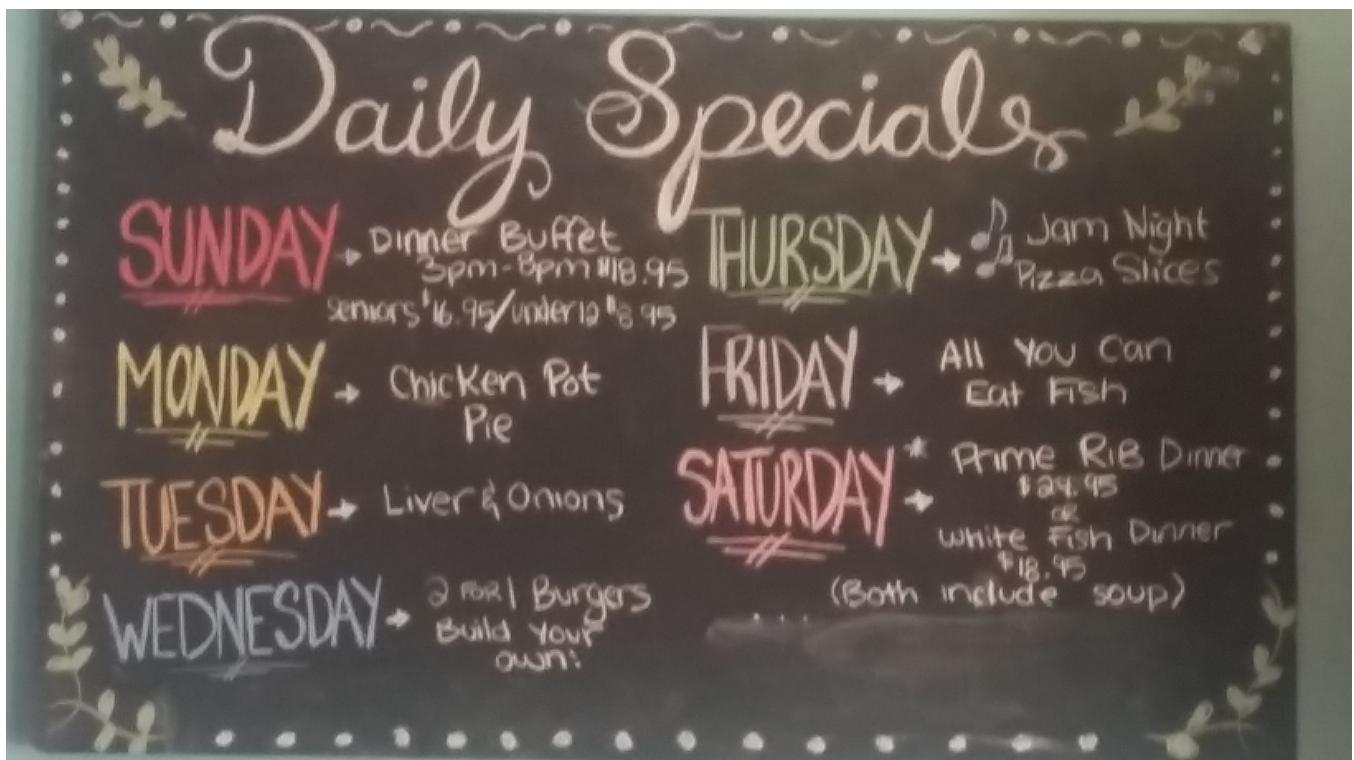 Daily Specials
SUNDAY → Dinner Buffet
3pm-8pm $18.95
seniors $16.95/under 12 $8.95
MONDAY → Chicken Pot
Pie
TUESDAY → Liver & Onions
WEDNESDAY → 2 FOR 1 Burgers
Build Your
own!
THURSDAY → Jam Night
Pizza Slices
FRIDAY → All You Can
Eat Fish
SATURDAY → * Prime Rib Dinner
$24.95
OR
White Fish Dinner
$18.95
(Both include soup)